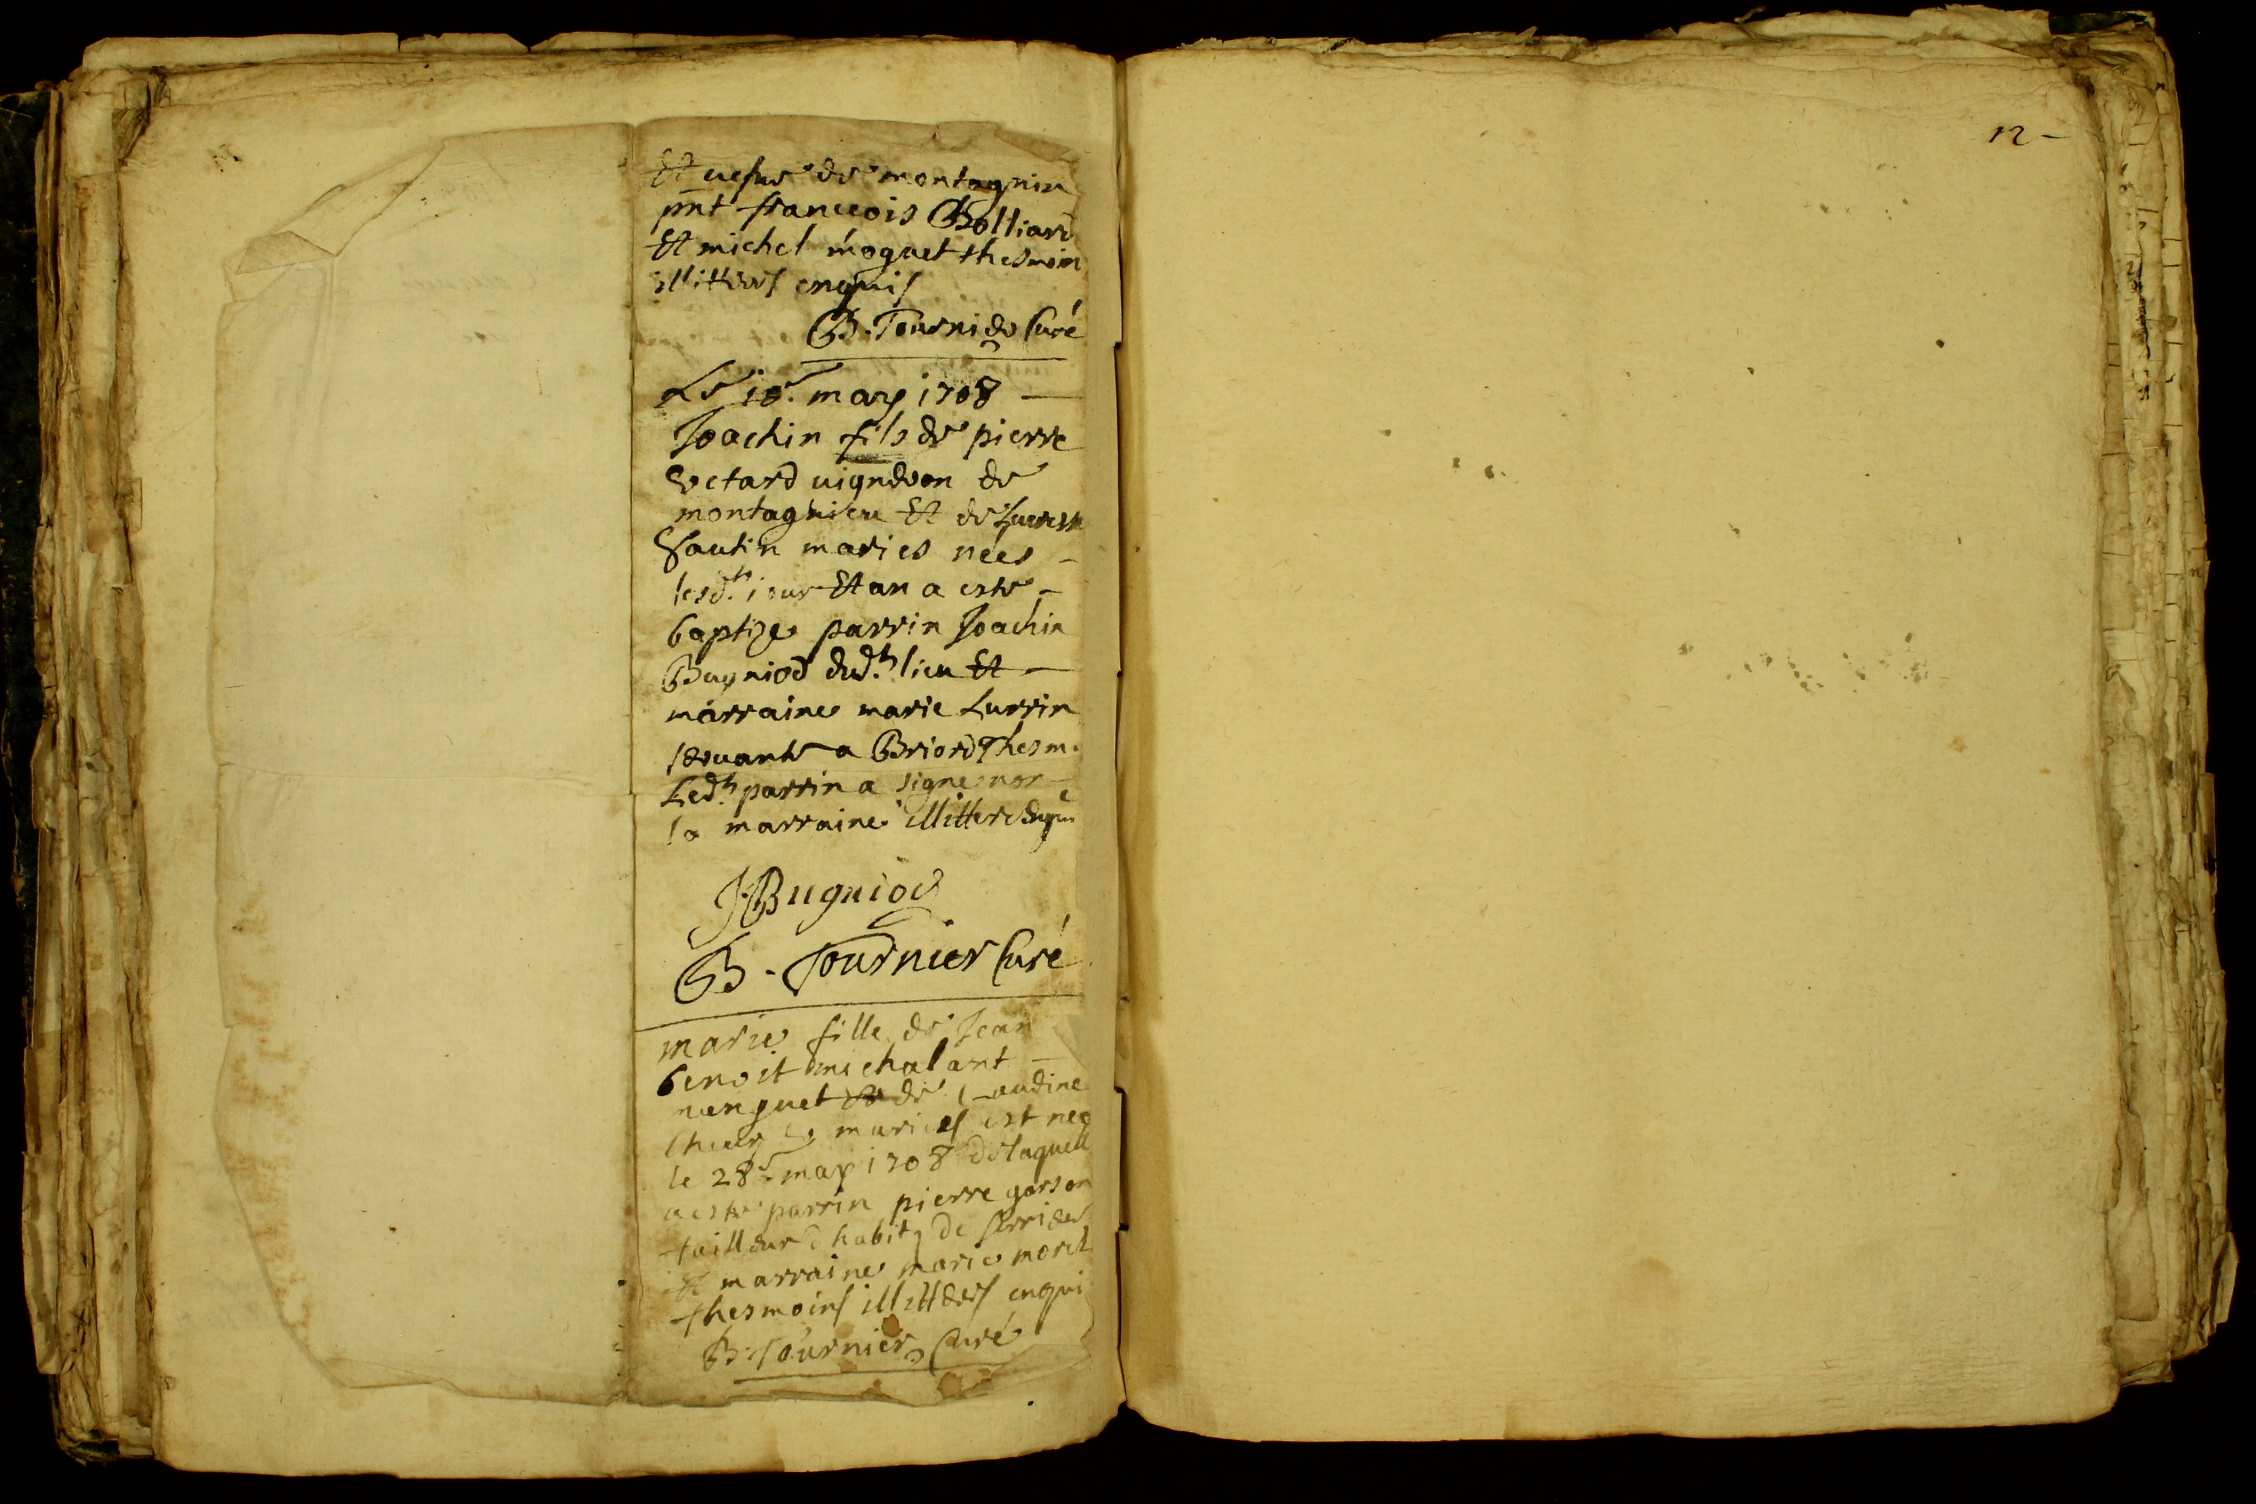 Et uefue de montagnieu
pnt franceois Bolliard
Et michel moguet thesmoin
illitters enquis
B. Tournier Curé
Le 10e. may 1708
Joachin fils de pierre
uigneron de
montagnieu Et de Lucresse
Gautin maries nées
lesdts. iour Et an a este
baptize parrin Joachin
Bugniod dudt. lieu Et
marraine marie Lurrin
seruante a Briord Thesm.
Ledt. parrin a signe non
la marraine illittere Enquis
J Bugniod
B. Tournier Curé
12
marie fille de Jean
benoit michal ant
nunguet de Claudine
maries est nee
le 28e. may 1708 de laquelle
a este parrin pierre garson
tailleur d habits de serrieres
Et marraine marie morel
thesmoins illitters enqui
B. Tournier Curé